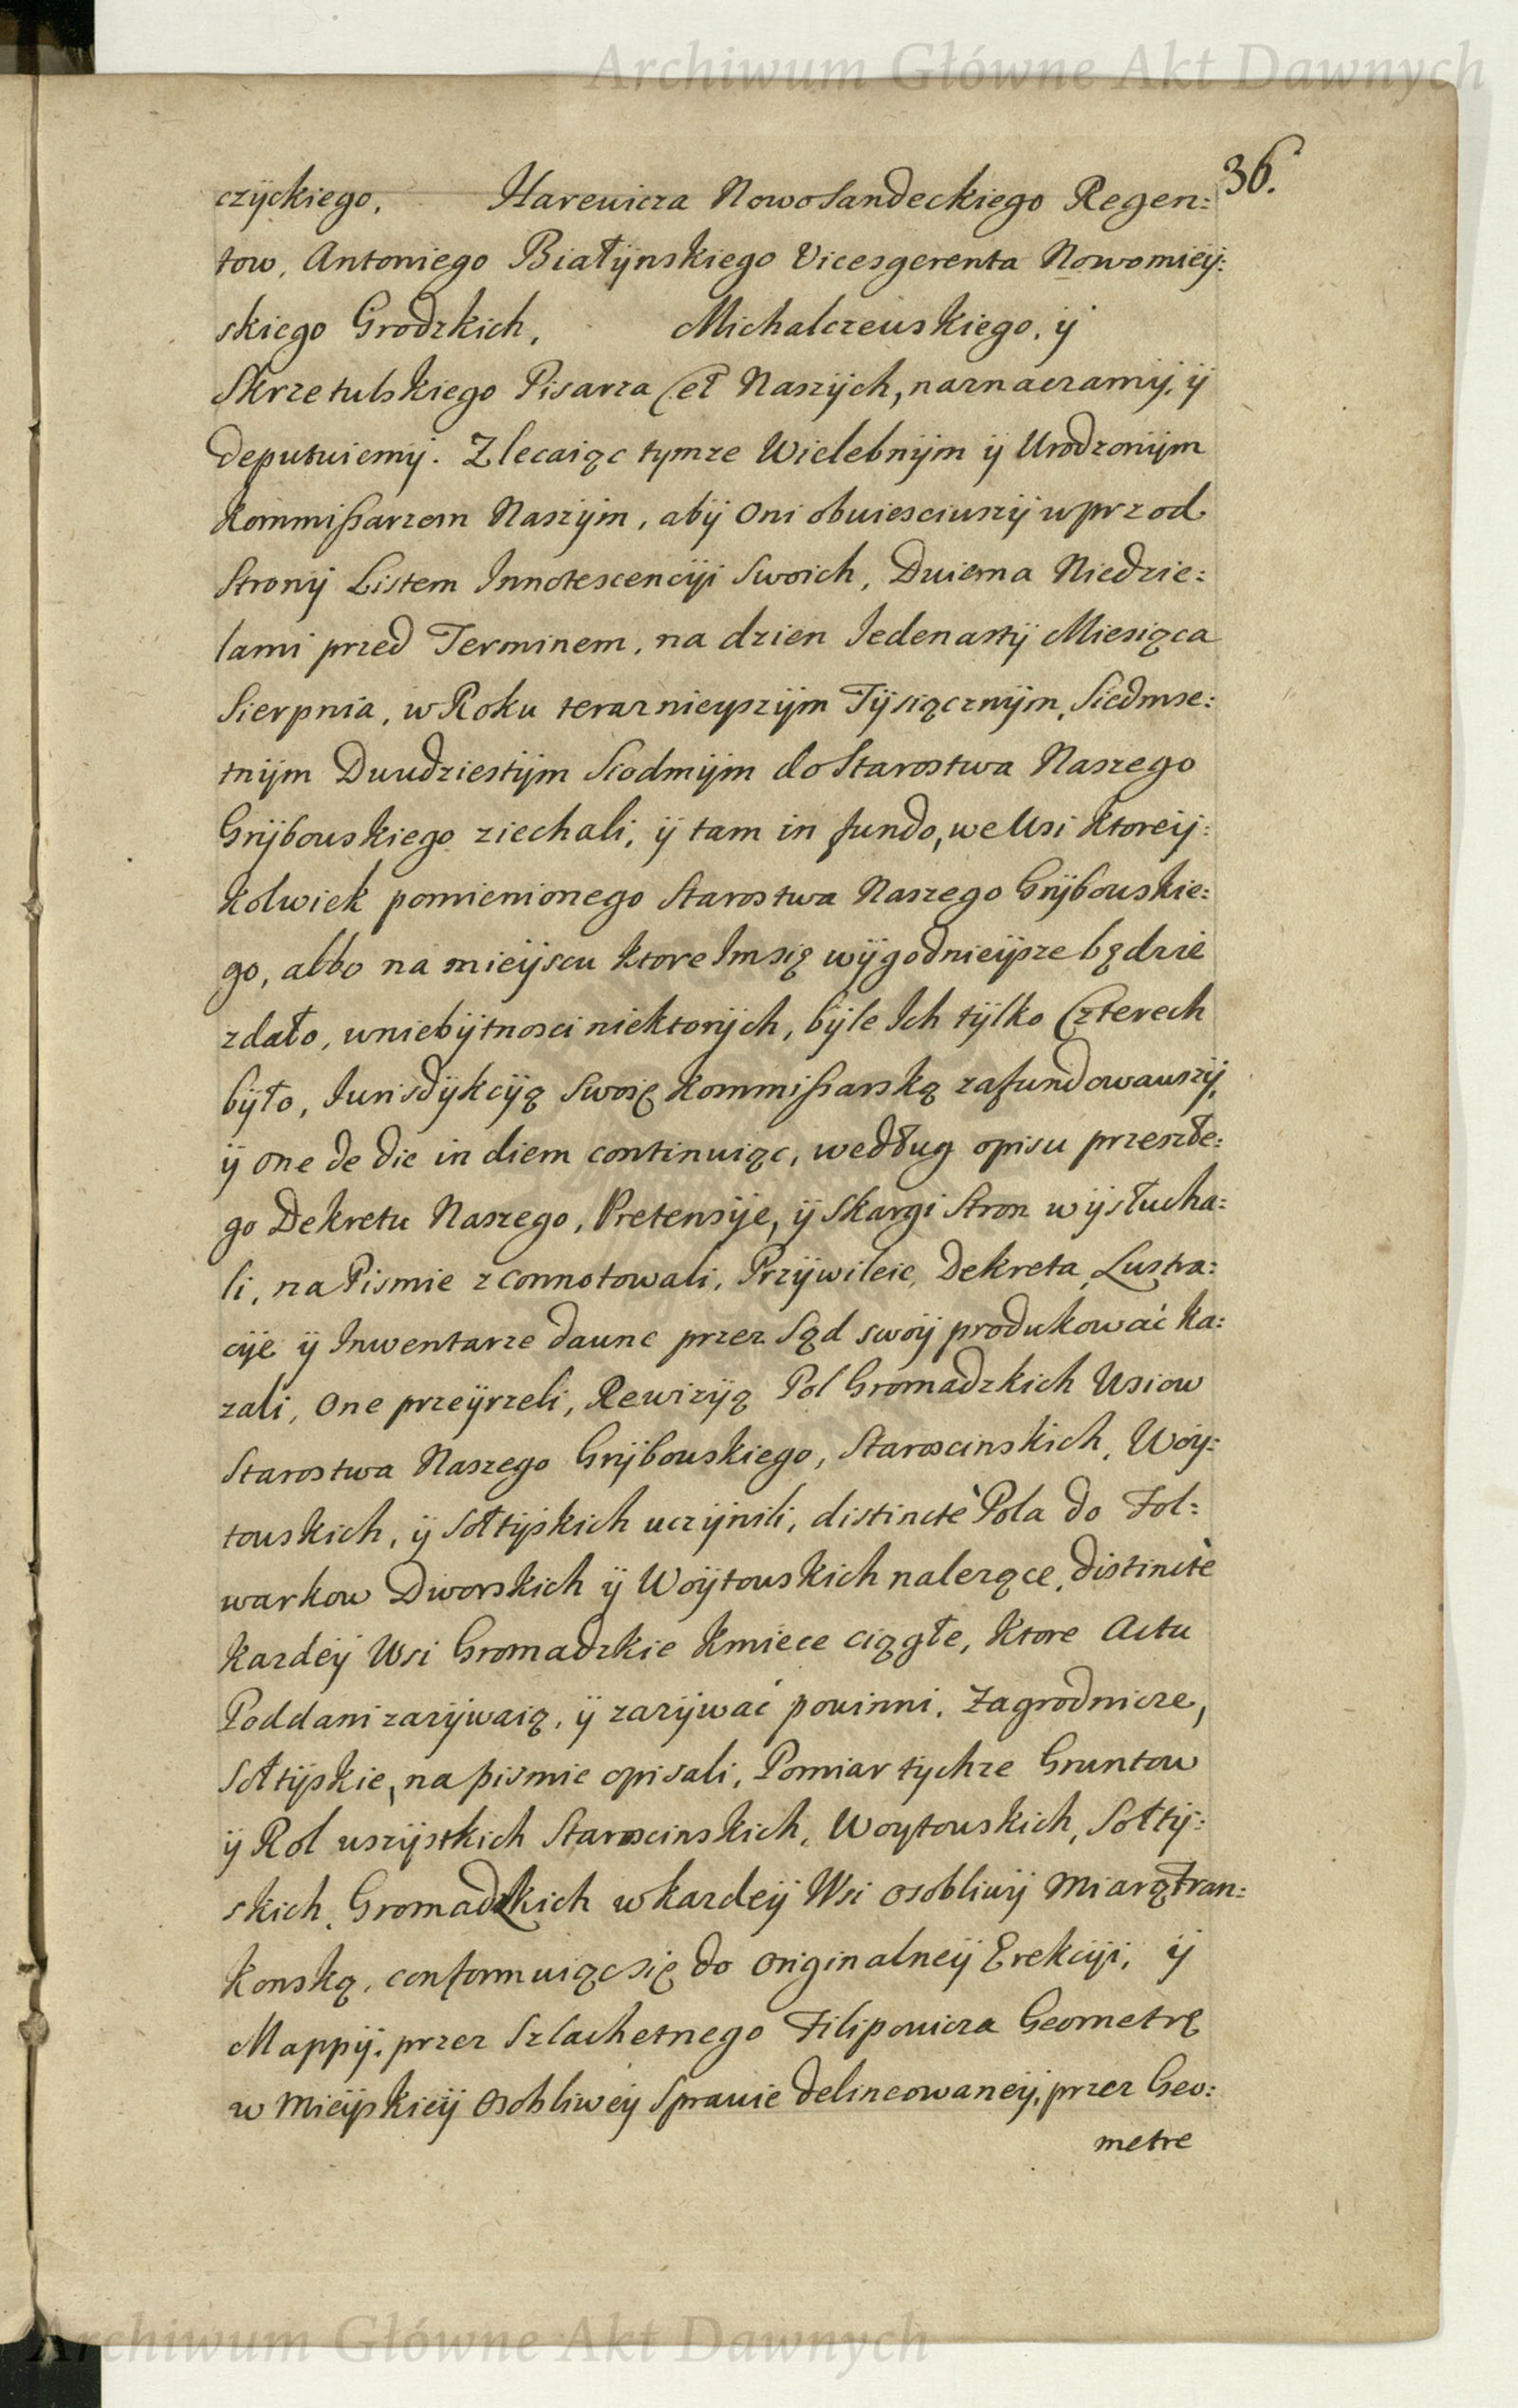 Archiwum Główne Akt Dawnych
36.
czÿckiego, Harewicza Nowosandeckiego Regen:
tow, Antoniego Białÿnskiego Vicesgerenta Nowomieÿ:
skiego Grodzkich, Michalczewskiego, ÿ
Skrzetulskiego Pisarza Ceł Naszÿch, naznaczamÿ, ÿ
deputuiemÿ. Zlecaiąc tymze Wielebnÿm ÿ Urodzonÿm
Kommißarzom Naszÿm, abÿ oni obwiesciwszÿ wprzod
Stronÿ Listem Innotescencÿi Swoich, Dwiema Niedzie:
lami przed Terminem, na dzien Iedenastÿ Miesiąca
Sierpnia, w Roku teraznieyszÿm Tÿsiącznÿm, Siedmse:
tnÿm Dwudziestÿm Siodmÿm do Starostwa Naszego
Grÿbowskiego ziechali, ÿ tam in fundo, we Wsi ktoreÿ:
kolwiek pomienionego Starostwa Naszego Grÿbowskie:
go, albo na mieÿscu ktore Im się wÿgodnieÿsze będzie
zdało, w niebÿtnosci niektorÿch, bÿle Ich tÿlko Czterech
bÿło, Iurisdÿkcÿą Swoię Kommißarską zafundowawszÿ,
ÿ one de die in diem continuiąc, według opisu przeszłe:
go Dekretu Naszego, Pretensÿe, ÿ Skargi Stron wÿsłucha:
li, na Pismie zconnotowali, Przÿwileie, Dekreta, Lustra:
cÿe ÿ Inwentarze dawne przez Sąd swoÿ produkować ka:
zali, one przeÿrzeli, Rewizÿą Pol Gromadzkich Wsiow
Starostwa Naszego Grÿbowskiego, Staroscinskich, Woÿ:
towskich, ÿ Sołtÿskich uczÿnili, distinctè Pola do Fol:
warkow Dworskich ÿ Woÿtowskich nalezące, distinctè
kazdeÿ Wsi Gromadzkie Kmiece ciągłe, ktore Actu
Poddani zazÿwaią, ÿ zazÿwać powinni, Zagrodnicze,
Sołtÿskie, na pismie opisali, Pomiar tychze Gruntow
ÿ Rol wszÿstkich Staroscinskich, Woytowskich, Sołtÿ:
skich, Gromadzkich w kazdeÿ Wsi osobliwÿ Miarą Fran:
konską, conformuiąc się do originalneÿ Erekcÿi, ÿ
Mappÿ, przez Szlachetnego Filipowicza Geometrę
w Mieÿskieÿ osobliweÿ Sprawie delineowaneÿ, przez Geo:
metre
Archiwum Główne Akt Dawnych